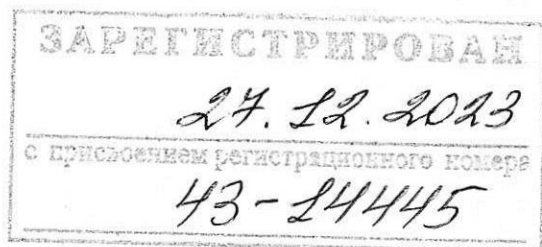 ЗАРЕГИСТРИРОВАН
27.12.2023
с присвоением регистрационного номера
43-14445